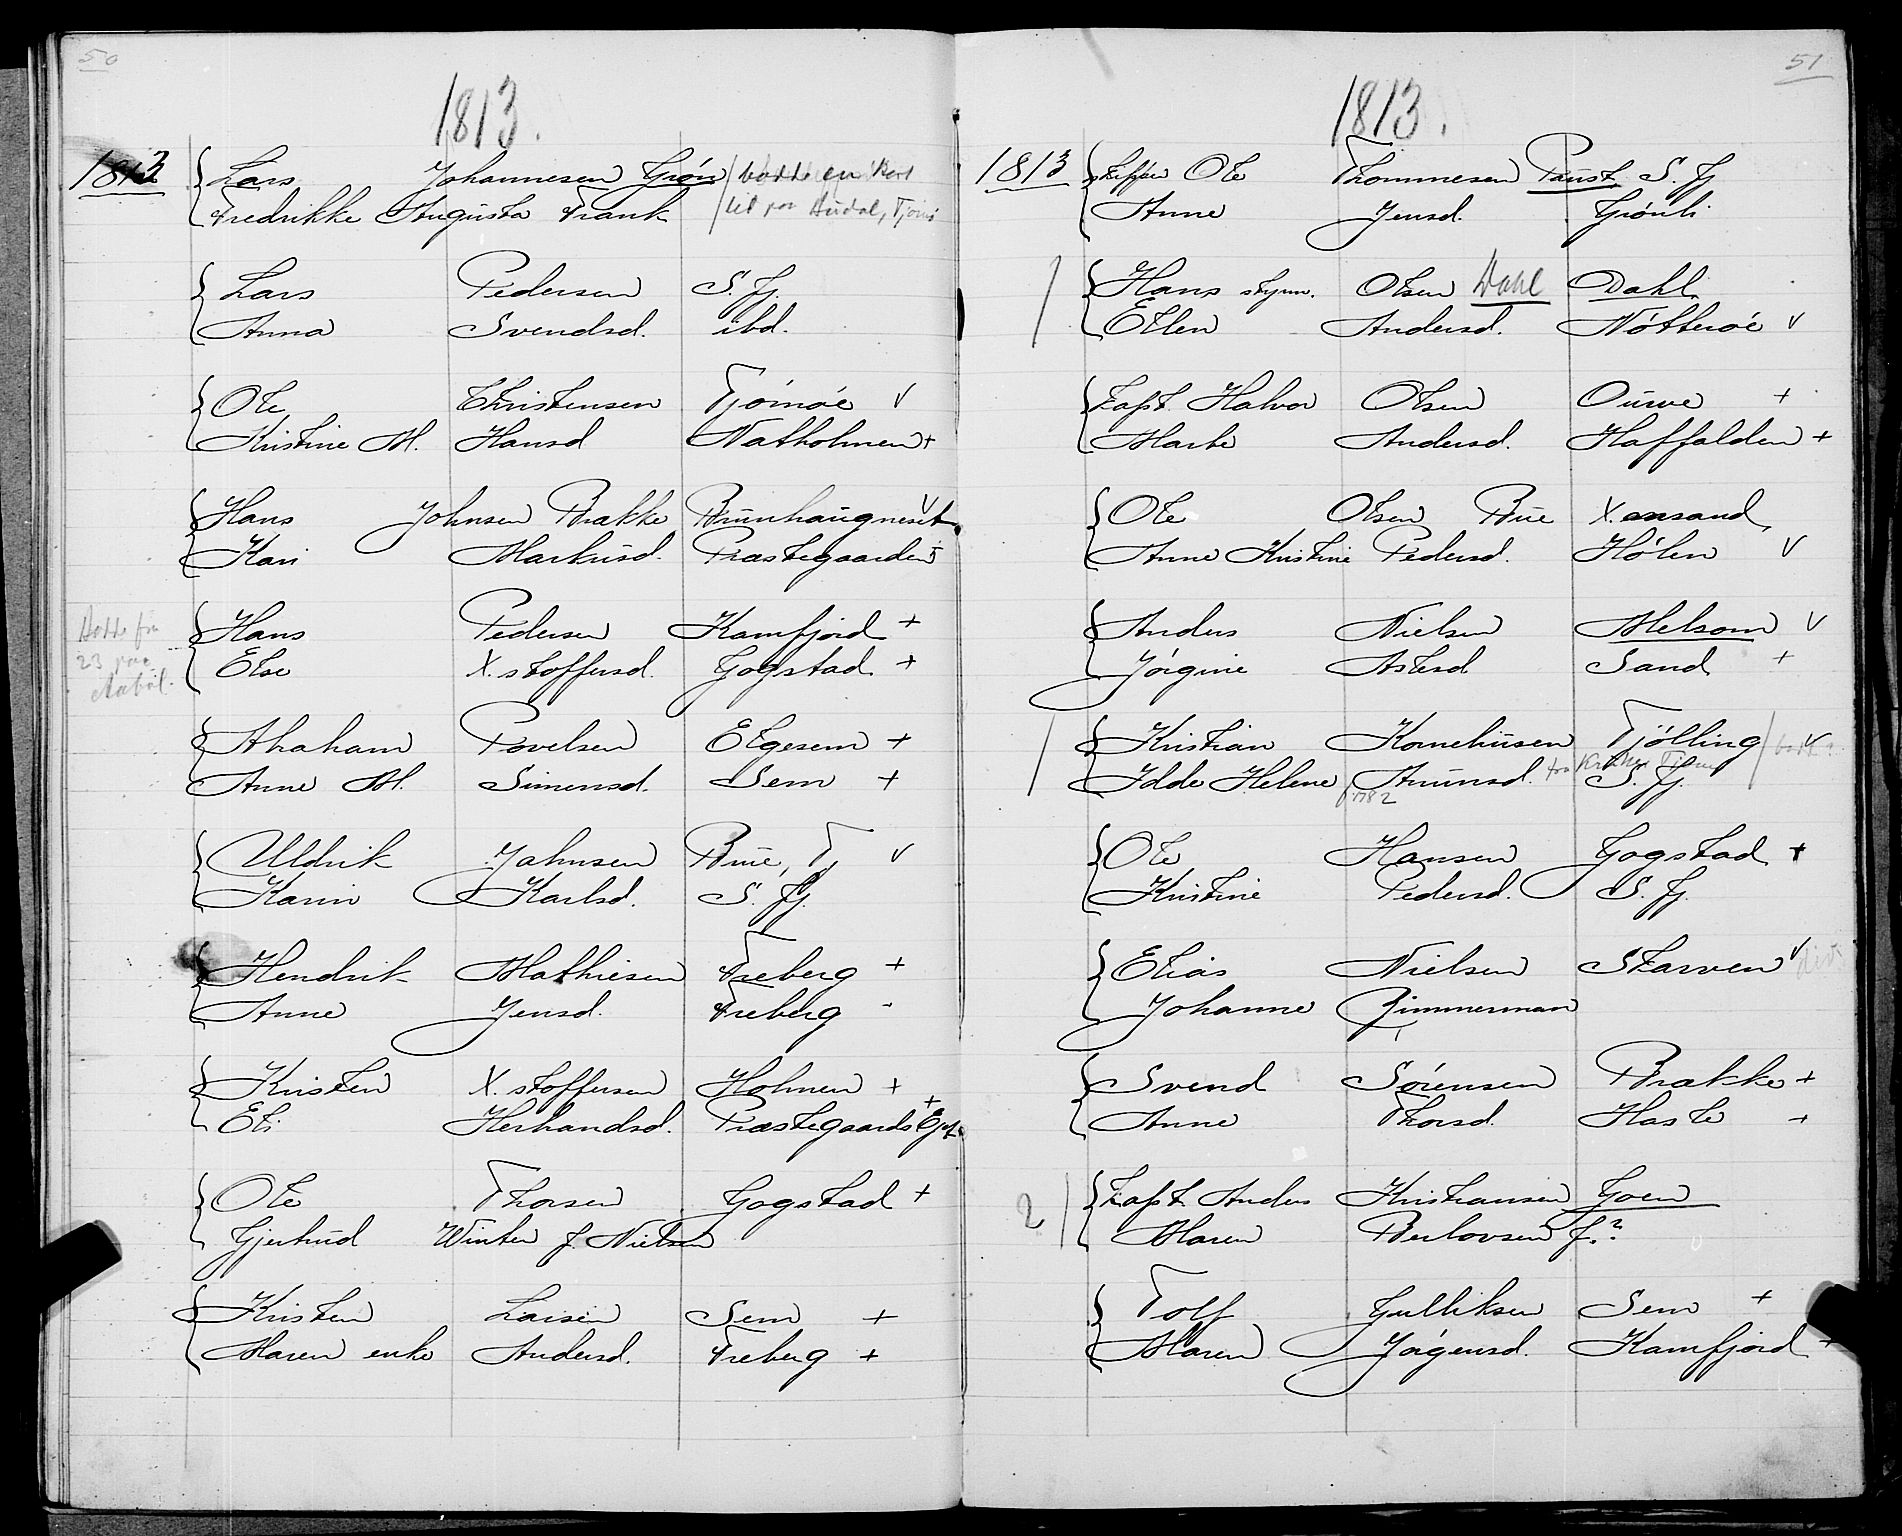 50
1813.
1813
Lars Johannesen Grøn
Fredrikke Augusta Frank
Lars Pedersen S. Fj.
Anna Svendsd. ibd.
Ole Christensen Tjømøe v
Kristine M. Hansd Natholmen +
Hans Johnsen Brakke Brunhaugneset v
Kari Markusd. Præstegaarden
Hans Pedersen Kamfjord +
Else X.stoffersd. Gogstad +
23 paa
Abraham Povelsen Elgesem +
Anne M. Simensd. Sem +
Uldrik Johnsen Bue, Tj v
Karin Karlsd. S. Fj.
Hendrik Mathiesen Freberg +
Anne Jensd. Freberg -
Kristen X.stoffersen Holmen +
Eli Herhandsd. Præstegaards Ejet. +
Ole Thorsen Gogstad +
Gjertrud Winter f. Nielsen
Kristen Larsen Sem +
Maren enke Andersd. Freberg +
51
1813.
1813
skipper Ole Thommesen Paust, S. Fj
Anne Jensd. Grønli
Hans styrm. Olsen Dahl Dahl
Ellen Andersd. Nøtterøe v
Kapt. Halvor Olsen Ourve +
Marte Andersd. Haffalden +
Ole Olsen Bue X.ansand,
Anne Kristine Pedersd. Hølen v
Anders Nielsen Melsom v
Jørgine Aslesd Sand +
Kristian Korneliusen Tjølling v
Idde Helene Amunsd. S. Fj.
f. 1782
Ole Hansen Gogstad +
Kristine Pedersd. S. Fj.
Elias Nielsen Skarven v
Johanne Zimmerman
Svend Sørensen Brakke +
Anne Thorsd. Hasle +
2 Kapt. Anders Kristiansen Goen
Maren Berlovsen f.?
Tolf Gulliksen Sem +
Maren Jørgensd. Kamfjord +